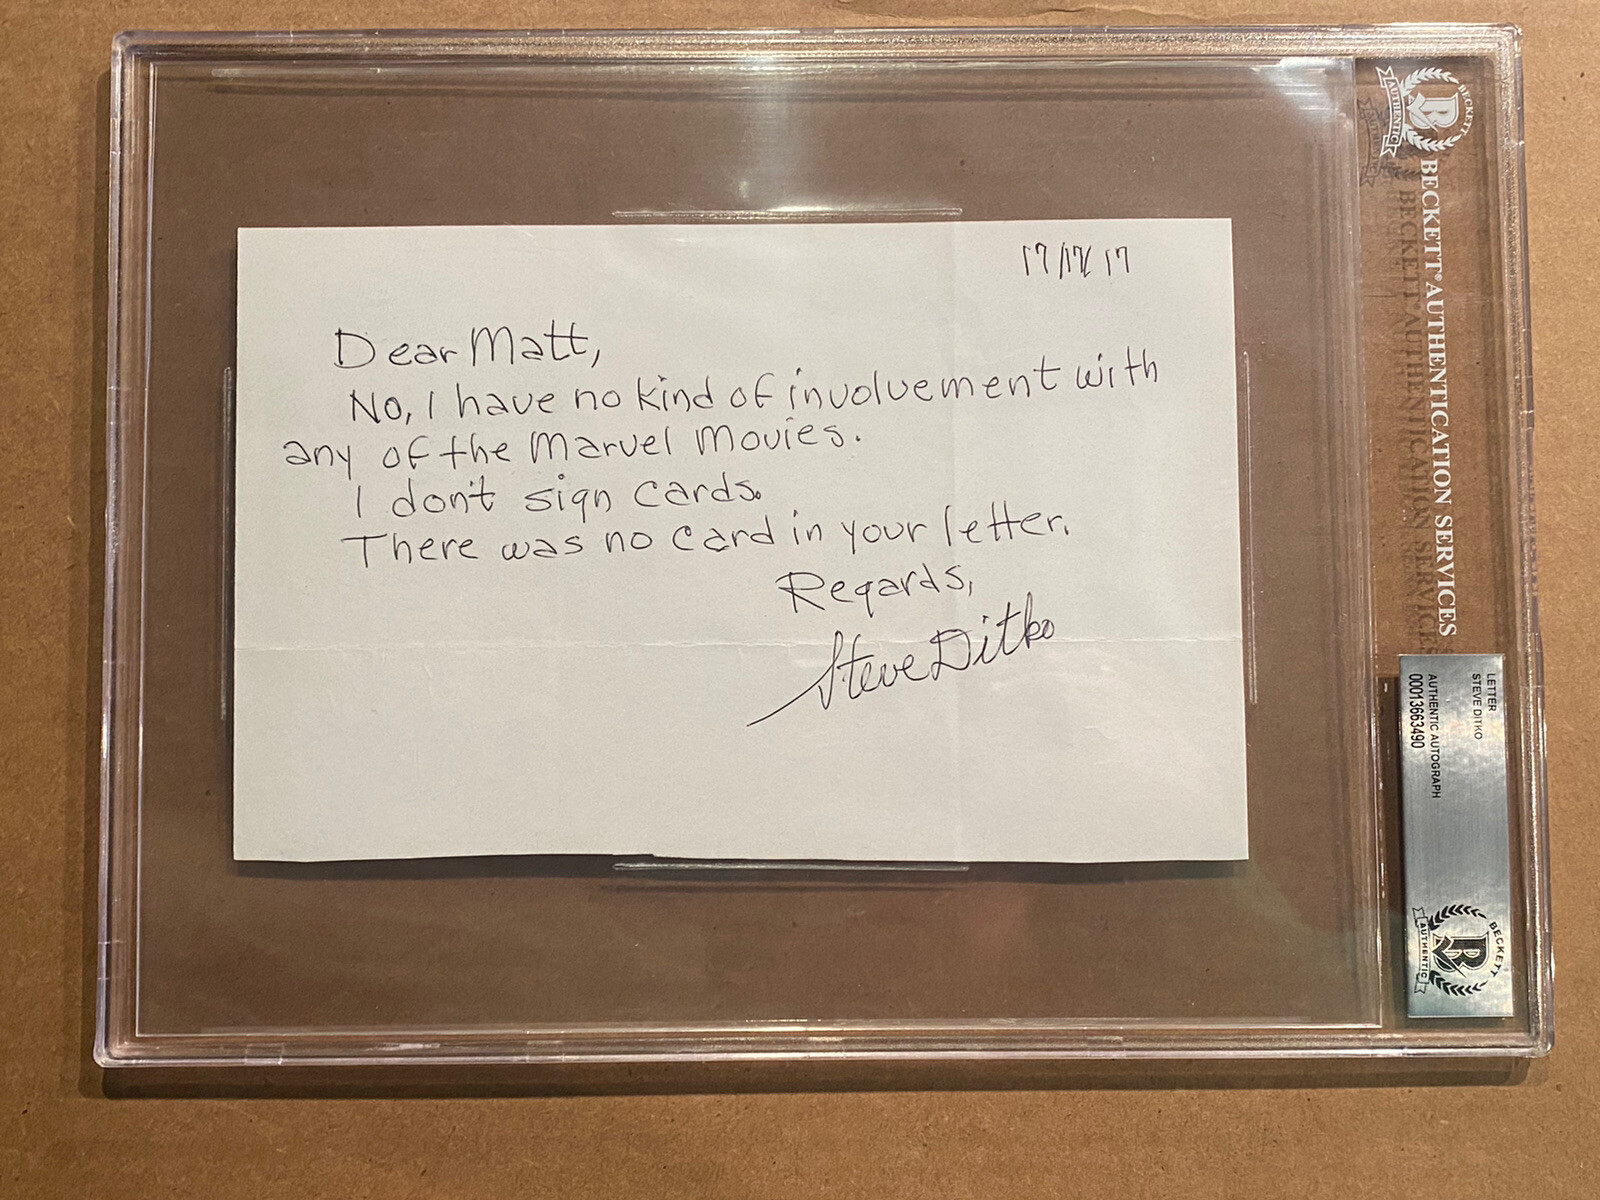 17/17/17
Dear Matt,
No, I have no kind of involvement with
any of the Marvel Movies.
I don't sign cards.
There was no card in your letter.
Regards,
Steve Ditko
BECKETT
AUTHENTIC
BECKETT® AUTHENTICATION SERVICES
LETTER
STEVE DITKO
AUTHENTIC AUTOGRAPH
00013663490
BECKETT
AUTHENTIC